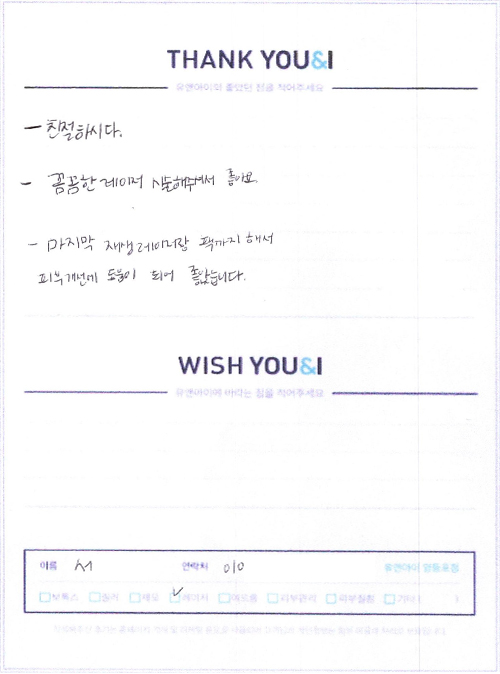 THANK YOU&I
유앤아이의 좋았던 점을 적어주세요
- 친절하시다.
- 꼼꼼한 레이저 시술해주셔서 좋아요.
- 마지막 재생레이저랑 팩까지 해서
피부개선에 도움이 되어 좋았습니다.
WISH YOU&I
유앤아이에 바라는 점을 적어주세요
이름 서 연락처 010 유앤아이 영등포점
보톡스 필러 제모 레이저 여드름 피부관리 피부질환 기타 ( )